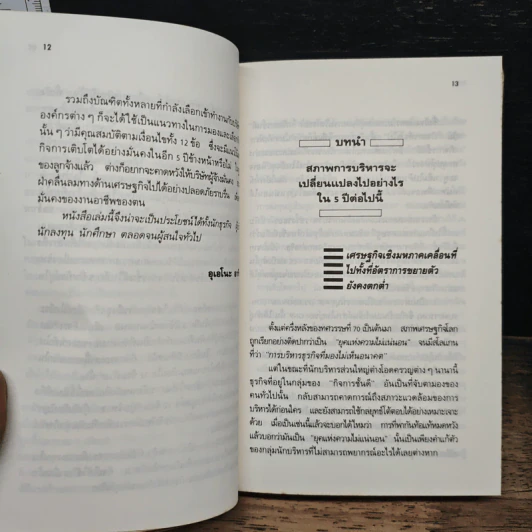 12
รวมถึงบัณฑิตทั้งหลายที่กำลังเลือกเข้าทำงานกับ
องค์กรต่าง ๆ ก็จะได้ใช้เป็นแนวทางในการมองและ
นั้น ๆ ว่ามีคุณสมบัติตามเงื่อนไขทั้ง 12 ข้อ ซึ่งจะ
กิจการเติบโตได้อย่างมั่นคงในอีก 5 ปีข้างหน้าหรือไม่
ของลูกจ้างแล้ว ต่างก็อยากจะคาดหวังให้บริษัทผู้จ้าง
ฝ่าคลื่นลมทางด้านเศรษฐกิจไปได้อย่างปลอดภัยราบรื่น
มั่นคงของงานอาชีพของตน
หนังสือเล่มนี้จึงน่าจะเป็นประโยชน์ได้ทั้งนักธุรกิจ
นักลงทุน นักศึกษา ตลอดจนผู้สนใจทั่วไป
อุเอโนะ
13
บทนำ
สภาพการบริหารจะ
เปลี่ยนแปลงไปอย่างไร
ใน 5 ปีต่อไปนี้
เศรษฐกิจเชิงมหภาคเคลื่อนที่
ไปทั้งที่อัตราการขยายตัว
ยังคงตกต่ำ
ตั้งแต่ครึ่งหลังของทศวรรษที่ 70 เป็นต้นมา สภาพเศรษฐกิจโลก
ถูกเรียกอย่างติดปากว่าเป็น "ยุคแห่งความไม่แน่นอน" จนมีสโลแกน
ที่ว่า "การบริหารธุรกิจที่มองไม่เห็นอนาคต"
แต่ในขณะที่นักบริหารส่วนใหญ่ต่างโอดครวญต่าง ๆ นานานี้
ธุรกิจที่อยู่ในกลุ่มของ "กิจการชั้นดี" อันเป็นที่จับตามองของ
คนทั่วไปนั้น กลับสามารถคาดการณ์ถึงสภาวะแวดล้อมของการ
บริหารได้ก่อนใคร และยังสามารถใช้กลยุทธ์โต้ตอบได้อย่างเหมาะเจาะ
ด้วย เมื่อเป็นเช่นนี้แล้วจะบอกได้ไหมว่า การที่พากันท้อแท้หมดหวัง
แล้วบอกว่ามันเป็น "ยุคแห่งความไม่แน่นอน" นั้นเป็นเพียงคำแก้ตัว
ของกลุ่มนักบริหารที่ไม่สามารถพยากรณ์อะไรได้เลยต่างหาก